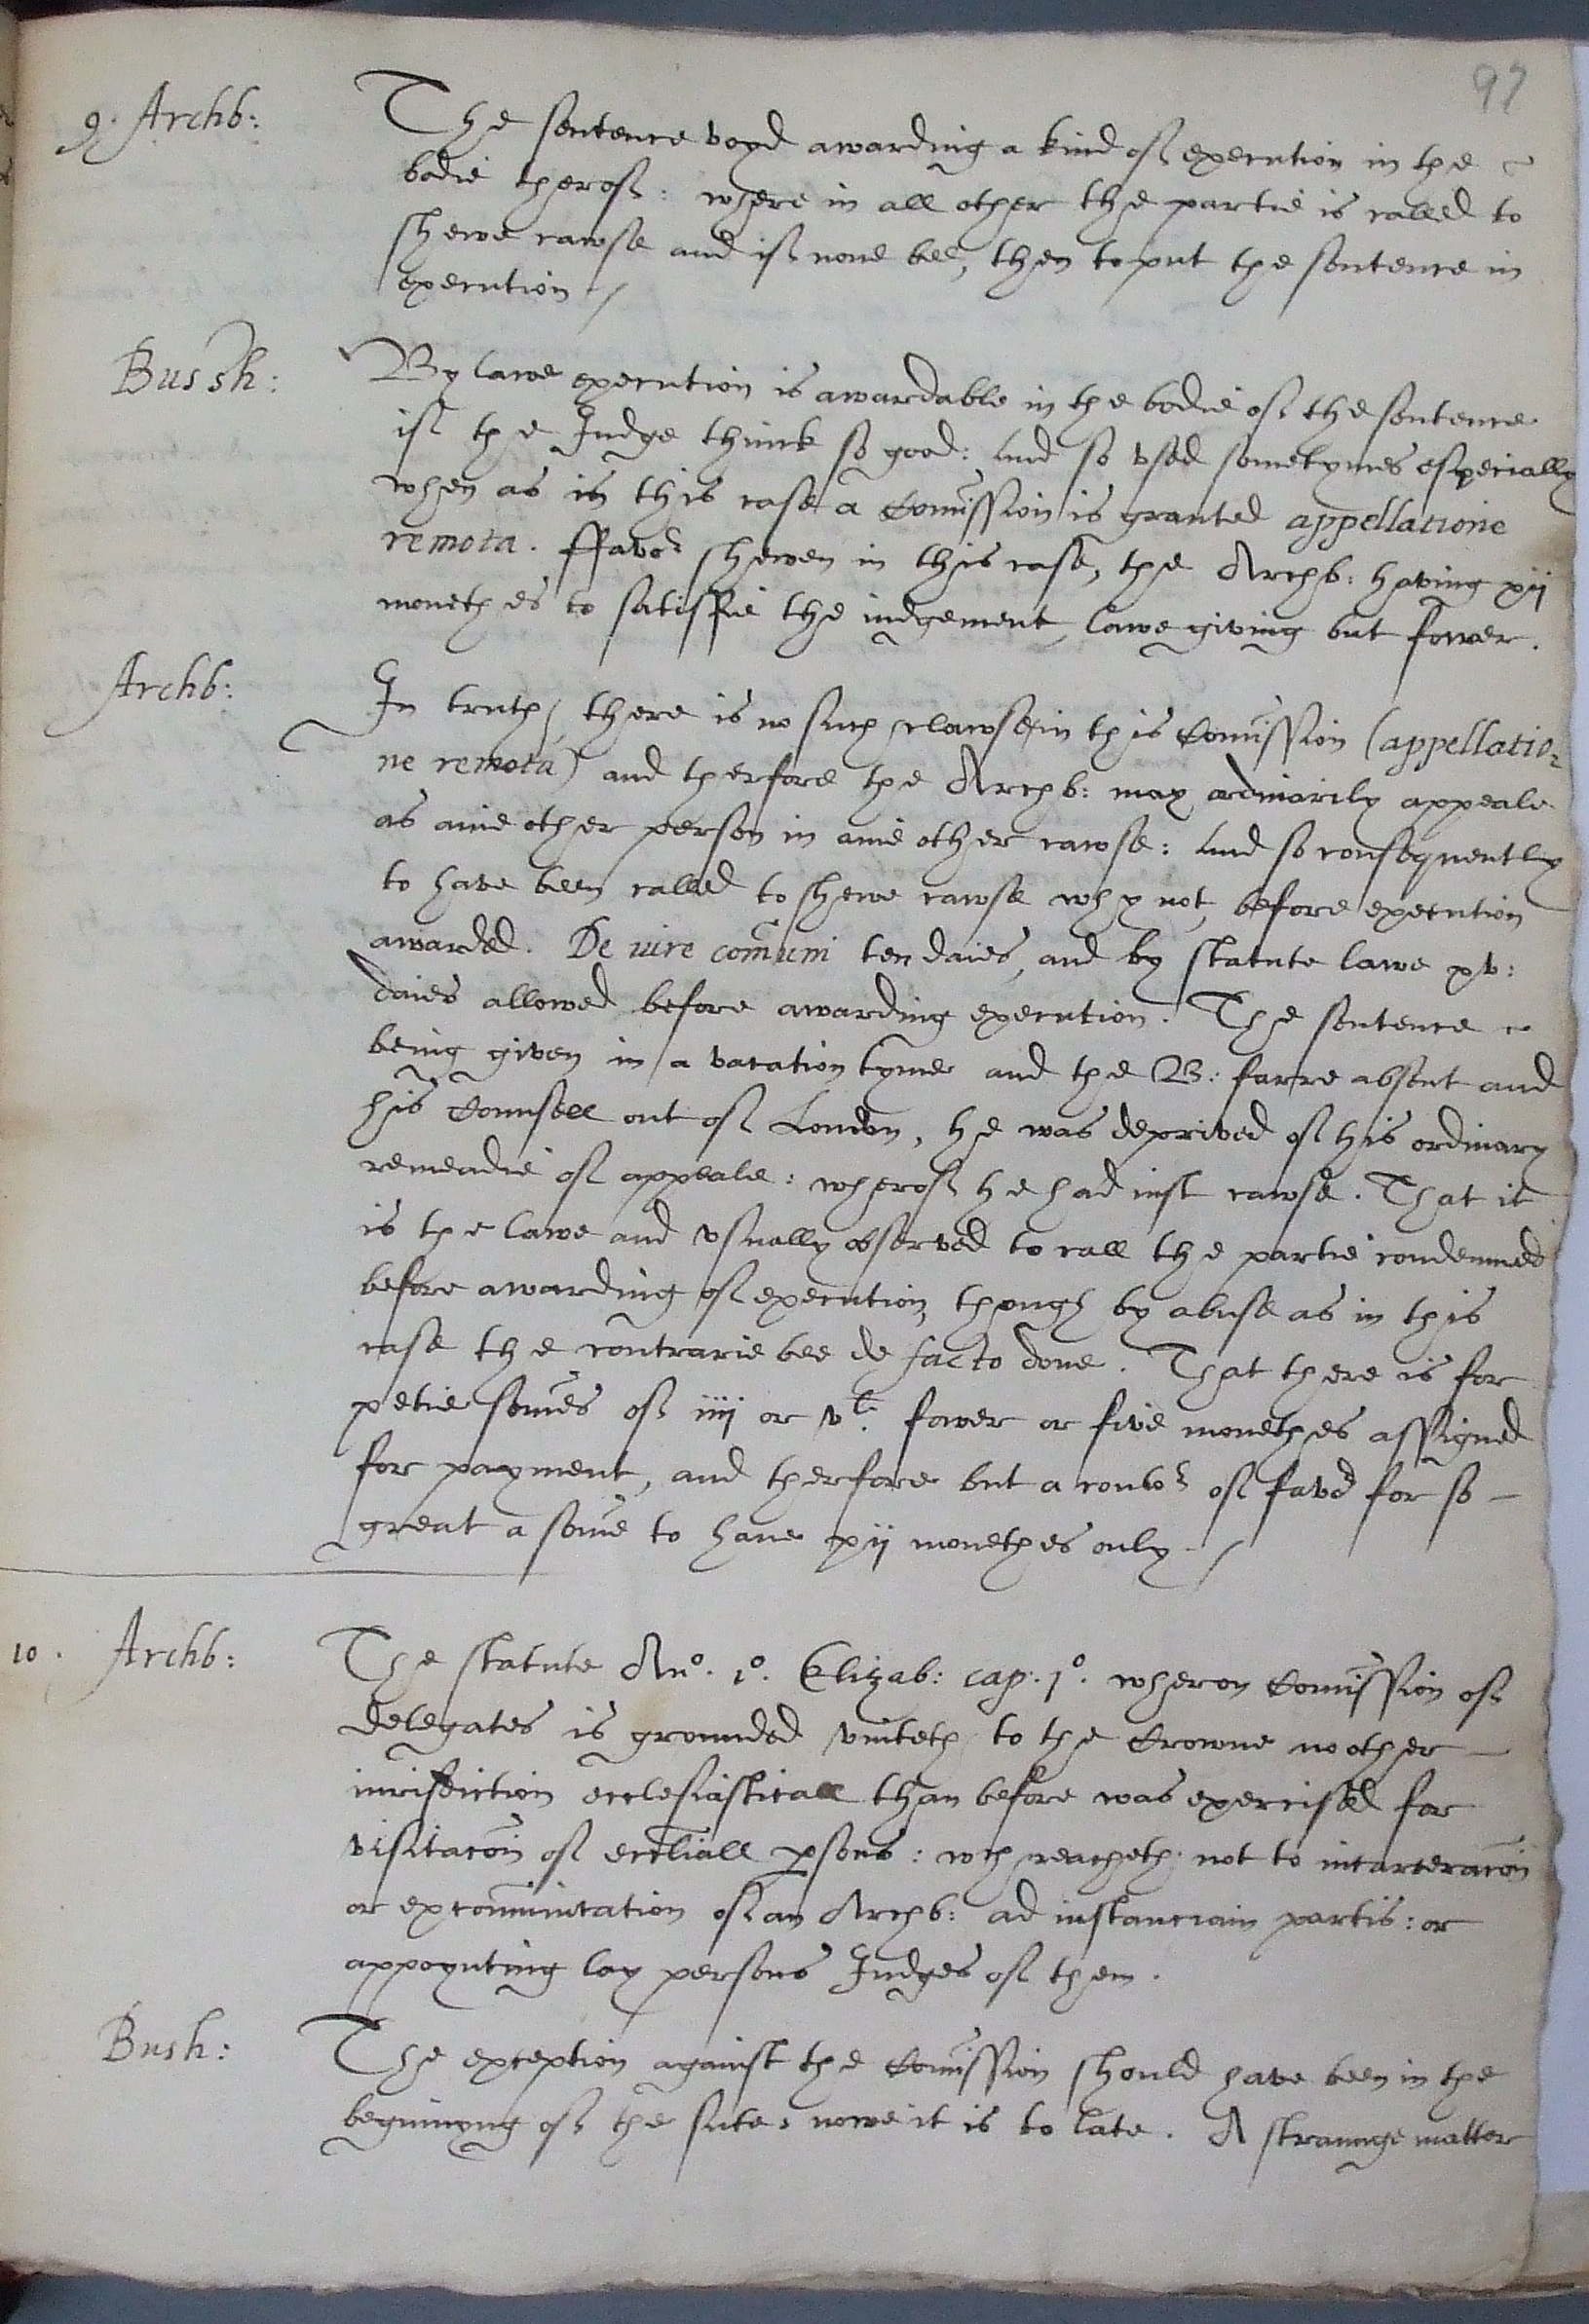 97
9. Archb: The sentence voyd awarding a kind of execution in the
bodie therof: where in all other the partie is called to
shewe cawse and if none bee, then to put the sentence in
execution /
Bussh: By lawe execution is awardable in the bodie of the sentence
if the Judge think so good: And so vsed sometymes especially
when as in this case a Comission is granted appellatione
remota. ffavor shewen in this case, the Archb: having xij
monethes to satisfie the iudgement, lawe giving but fower.
Archb: In truth, there is no such clawse in this Comission (appellatio-
ne remota) and therfore the Archb: may ordinarily appeale
as anie other person in anie other cawse: And so consequently
to have been called to shewe cawse why not, before execution
awarded. De iure comuni ten daies, and by statute lawe xv:
daies allowed before awarding execution. The sentence
being given in a vacation tyme and the B: farre absent and
his Counsell out of London, he was deprived of his ordinary
remeadie of appeale: wherof he had iust cawse. That it
is the lawe and vsually observed to call the partie condemned
before awarding of execution, though by abuse as in this
case the contrarie bee de facto done. That there is for
petie somes of iiij or vl. fower or five monethes assigned
for payment, and therfore but a colour of favor for so
great a some to have xij monethes only /
10. Archb: The statute Ano. 1o. Elizab: cap. 1o. wheron Comission of
delegates is grounded vniteth to the Crowne no other
iurisdiction ecclesiasticall than before was exercised for
visitacōn of eccliall psons: wch reacheth not to incarceracōn
or excomunication of an Archb: ad instanciam partis: or
appoynting lay persons Judges of them.
Bush: The exception against the Comission should have been in the
beginnyng of the sute, nowe it is to late. A straunge matter